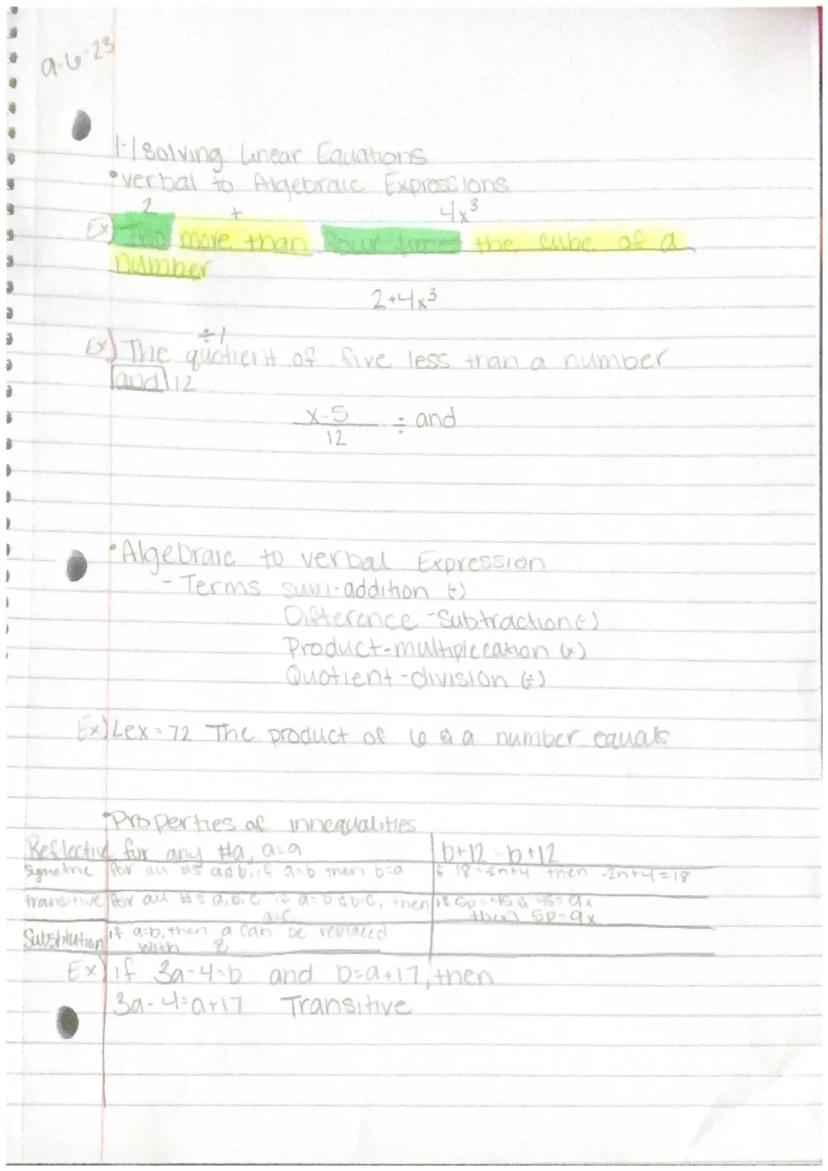 9-6-23
1.1 Solving Linear Equations
• Verbal to Algebraic Expressions
2 + 4x³
Ex) Two more than four times the cube of a
number
2+4x³
÷ /
Ex) The quotient of five less than a number
and 12
x-5
12
÷ and
• Algebraic to verbal Expression
- Terms sum-addition (+)
Difference -Subtraction (-)
Product-multiplication (x)
Quotient-division (÷)
Ex) 6x=72 The product of 6 & a number equals
• Properties of innequalities
Reflective for any #a, a=a b+12=b+12
Symetric for all #s a&b, if a=b then b=a if 18=-2n+4 then -2n+4=18
transitive for all #s a,b,c if a=b & b=c, then if 5p=45 & 45=9x
a=c then 5p=9x
Substitution if a=b, then a can be replaced
with
Ex) if 3a-4=b and b=a+17, then
3a-4=a+17 Transitive